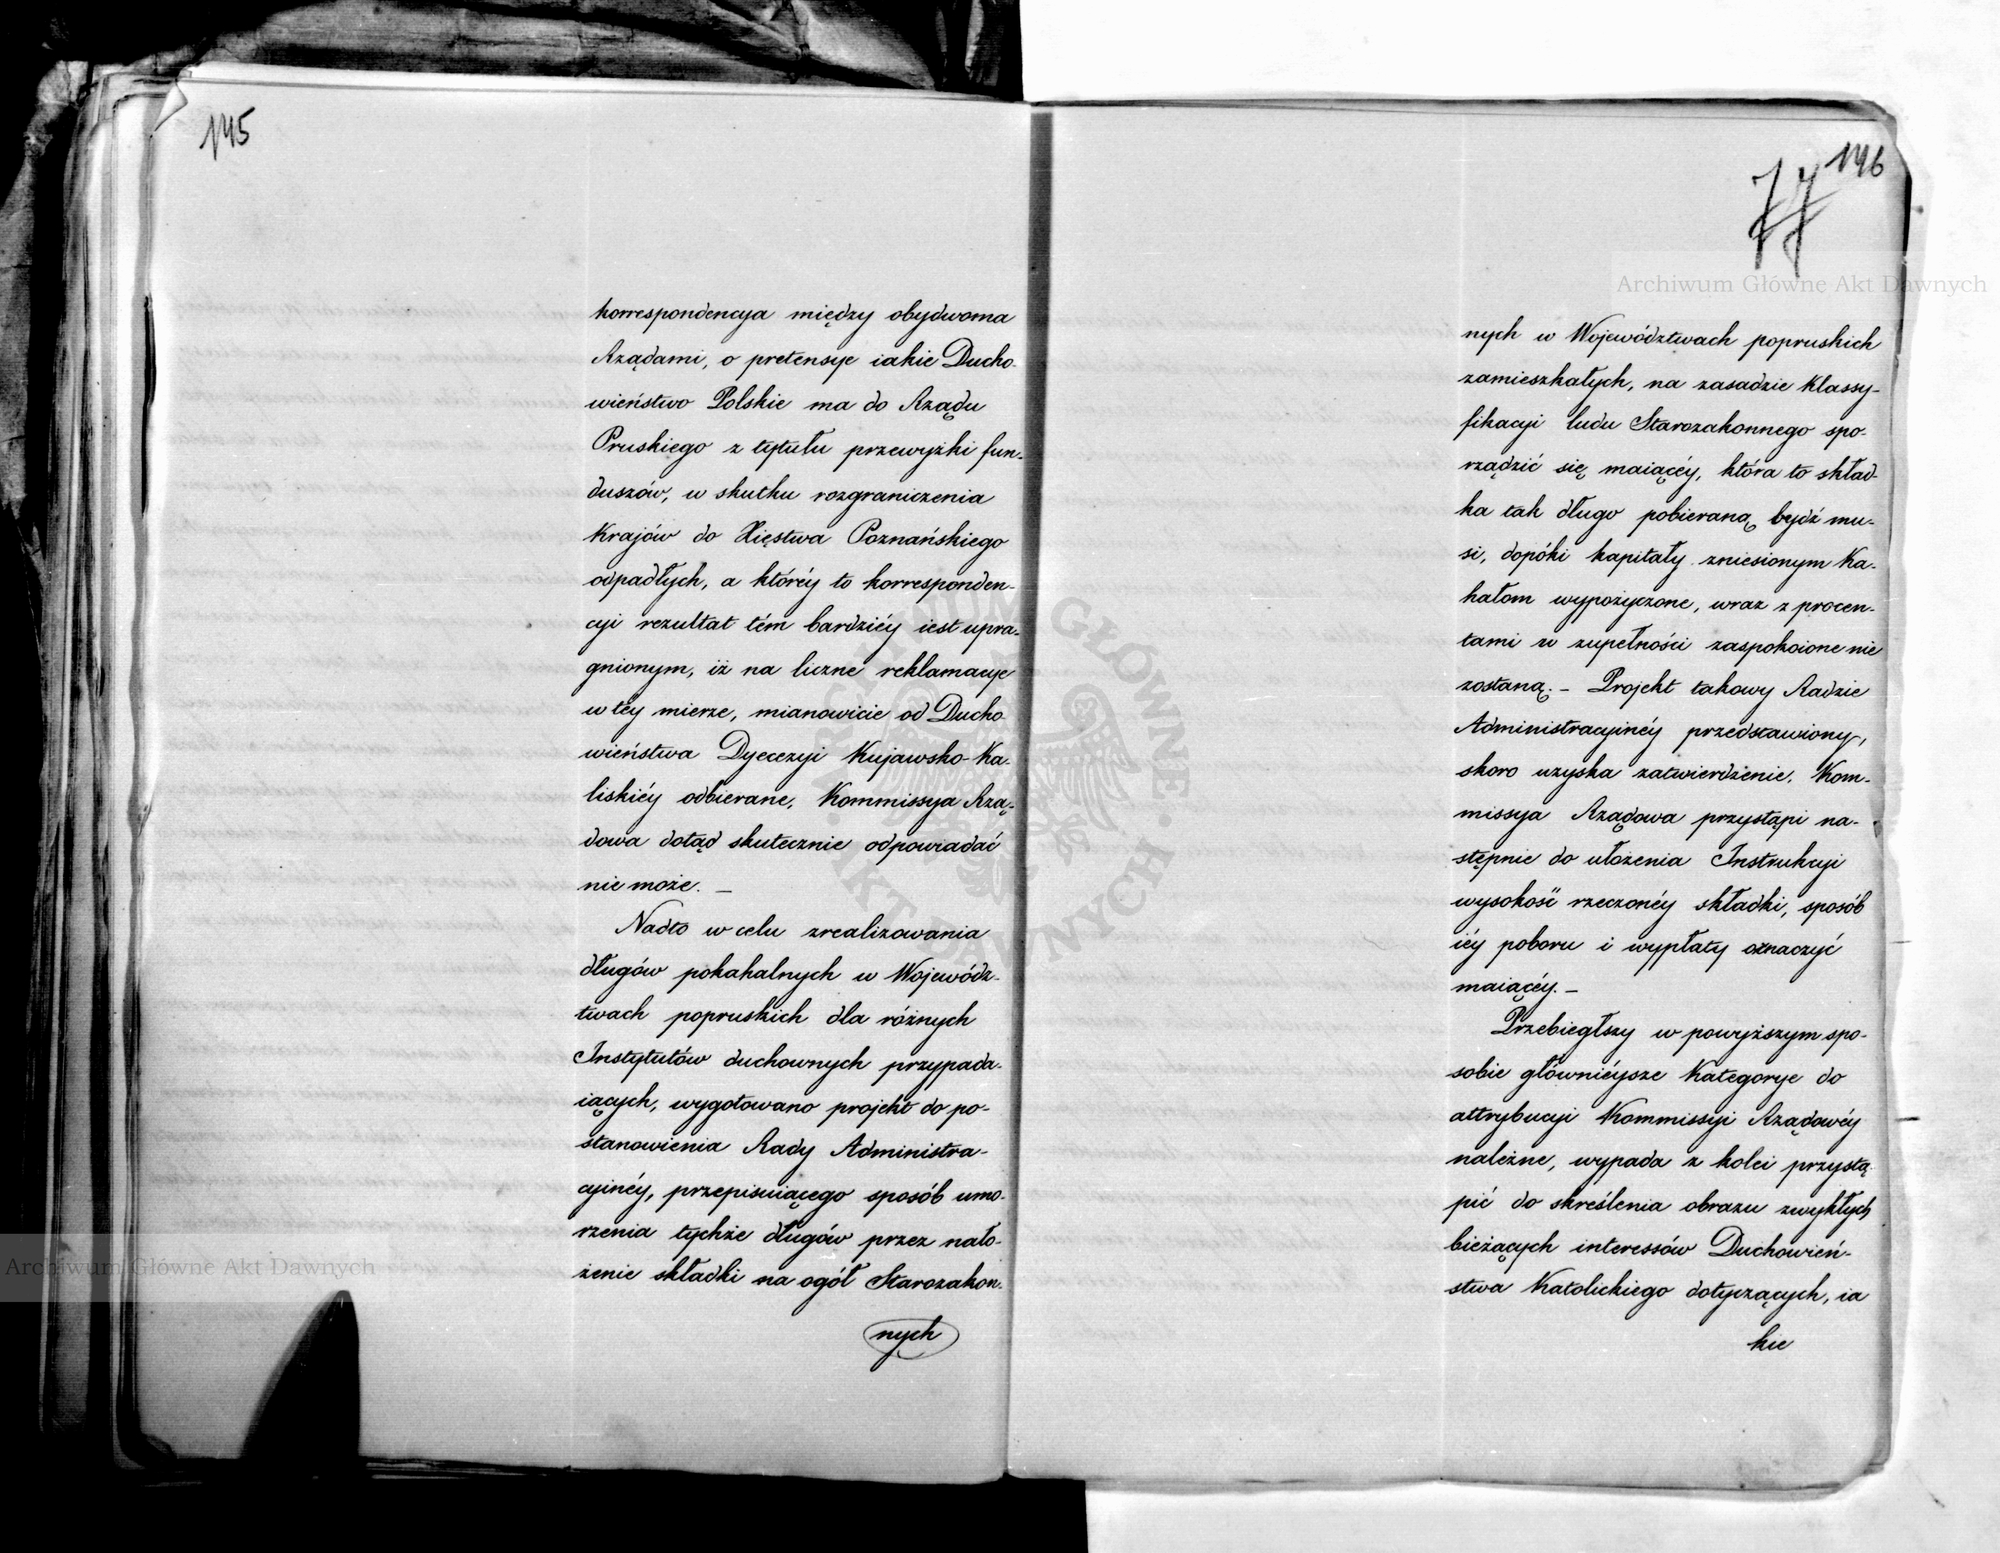 145
korrespondencya między obydwoma
Rządami, o pretensye iakie Ducho-
wieństwo Polskie ma do Rządu
Pruskiego z tytułu przewyżki fun-
duszów, w skutku rozgraniczenia
Krajów do Xięstwa Poznańskiego
odpadłych, a któréy to korresponden-
cyi rezultat tém bardziéy iest upra-
gnionym, iż na liczne reklamacye
w téy mierze, mianowicie od Ducho-
wieństwa Dyecezyi Kujawsko-Ka-
liskiéy odbierane, Kommissya Rzą-
dowa dotąd skutecznie odpowiadać
nie może. —
Nadto w celu zrealizowania
długów pokahalnych w Wojewódz-
twach popruskich dla różnych
Instytutów duchownych przypada-
iących, wygotowano projekt do po-
stanowienia Rady Administra-
cyinéy, przepisuiącego sposób umo-
rzenia tychże długów przez nało-
żenie składki na ogół Starozakon-
nych
146
77
nych w Województwach popruskich
zamieszkałych, na zasadzie Klassy-
fikacyi ludu Starozakonnego spo-
rządzić się maiącéy, która to skład-
ka tak długo pobieraną bydź mu-
si, dopóki kapitały zniesionym Ka-
hałom wypożyczone, wraz z procen-
tami w zupełności zaspokoione nie
zostaną. — Projekt takowy Radzie
Administracyinéy przedstawiony,
skoro uzyska zatwierdzenie, Kom-
missya Rządowa przystąpi na-
stępnie do ułożenia Instrukcyi
wysokość rzeczonéy składki, sposób
iéy poboru i wypłaty oznaczyć
maiącéy. —
Przebiegłszy w powyższym spo-
sobie główniéysze Kategorye do
attrybucyi Kommissyi Rządowéy
należne, wypada z kolei przystą-
pić do skreślenia obrazu zwykłych
bieżących interessów Duchowień-
stwa Katolickiego dotyczących, ia
kie
Archiwum Główne Akt Dawnych
Archiwum Główne Akt Dawnych
ARCHIWUM GŁÓWNE AKT DAWNYCH